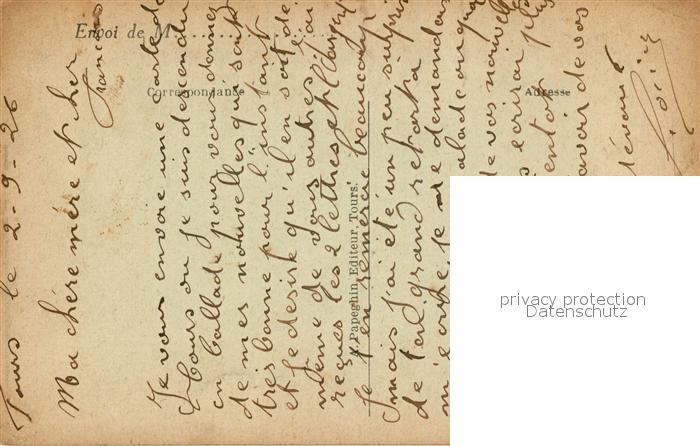 Envoi de M
Correspondance
Adresse
A. Papeghin, Editeur, Tours.
Tours le 2-9-26
Ma chère mère et cher
Francis
Je vous envoie une carte de
Tours ou je suis descendu
en ballade pour vous donnez
de mes nouvelles qui sont
très bonne pour l'instant
et je désire qu'il en soit de
même de vous autres. J'ai
reçue les 2 lettres et
je t'en remercie beaucoup
mais j'ai été un peu surpris
de ton grand retard a
m'écrire, je me demandais
malade ou quoi
de vos nouvelles
écrirai plus
bientôt
avoir de vos
dévoué
privacy protection
Datenschutz